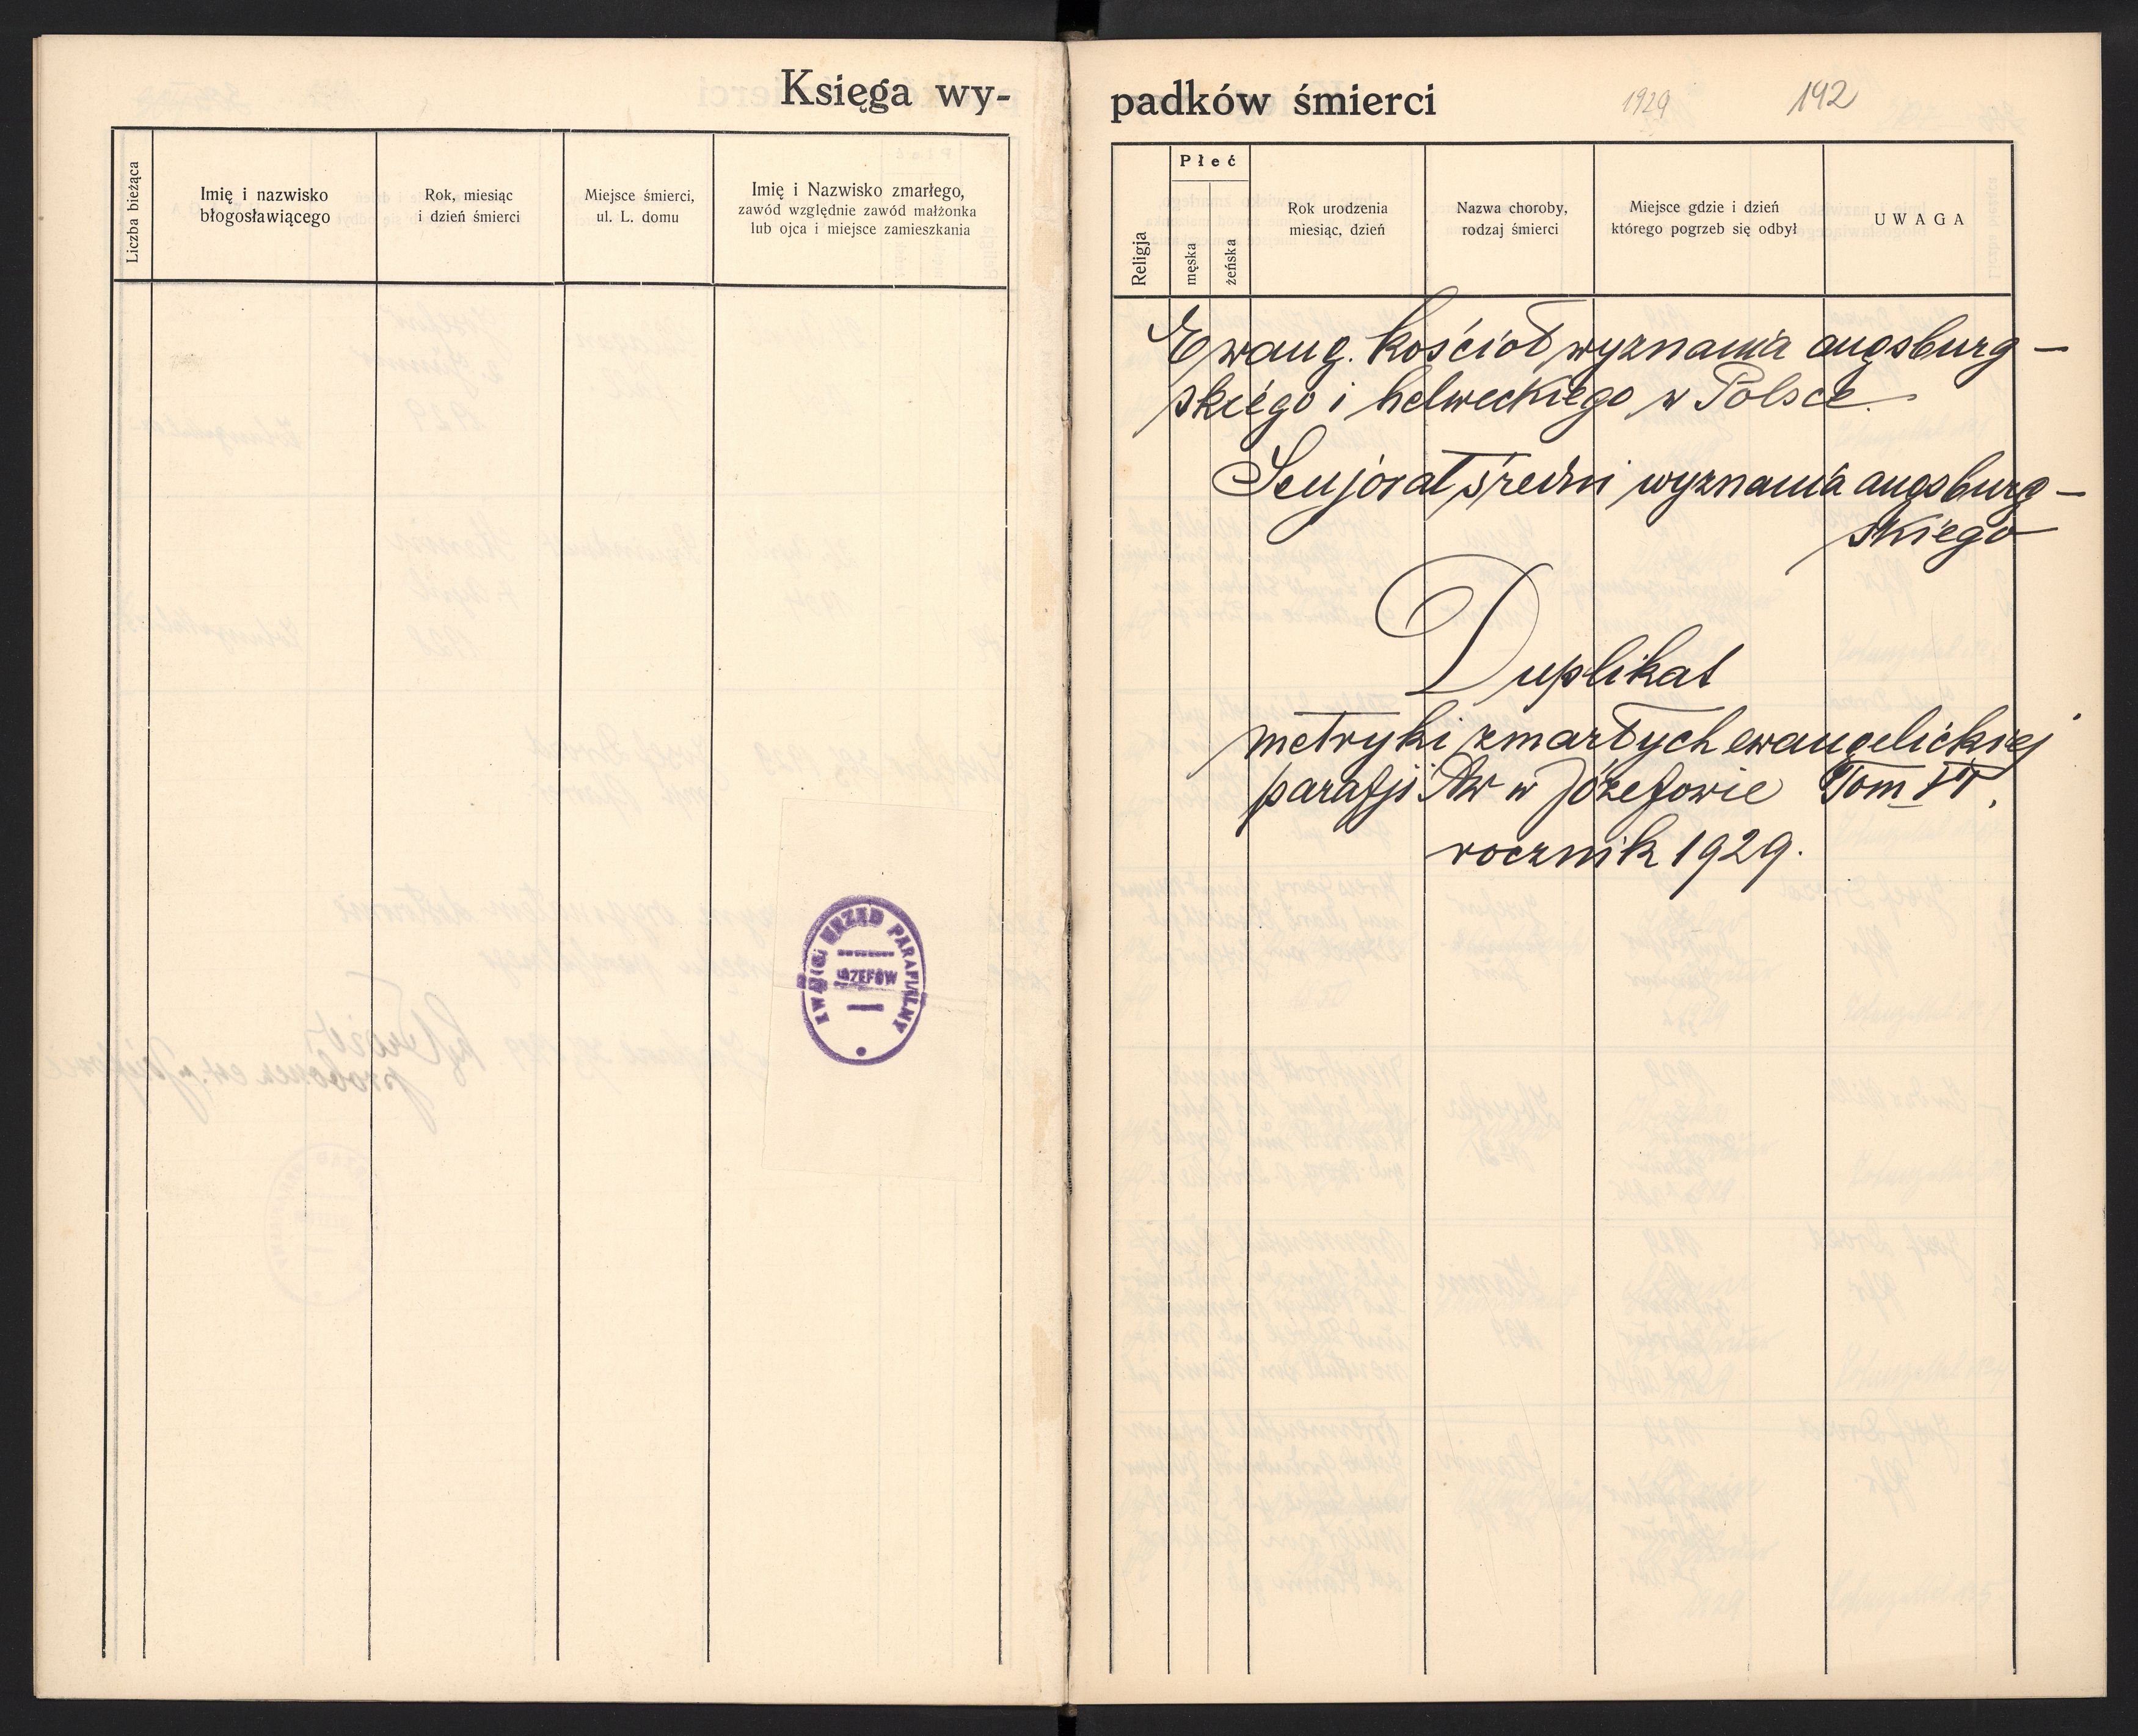 Księga wy-
Liczba bieżąca
Imię i nazwisko
błogosławiącego
Rok, miesiąc
i dzień śmierci
Miejsce śmierci,
ul. L. domu
Imię i Nazwisko zmarłego,
zawód względnie zawód małżonka
lub ojca i miejsce zamieszkania
URZĄD PARAFIALNY
JÓZEFÓW
padków śmierci
1929
192
Religja
Płeć
męska
żeńska
Rok urodzenia
miesiąc, dzień
Nazwa choroby,
rodzaj śmierci
Miejsce gdzie i dzień
którego pogrzeb się odbył
UWAGA
Ewang. kościoł wyznania augsburg-
skiego i helweckiego w Polsce.
Senjorat średni wyznania augsburg-
skiego
Duplikat
metryki zmarłych ewangelickiej
parafji AW w Józefowie Tom
rocznik 1929.